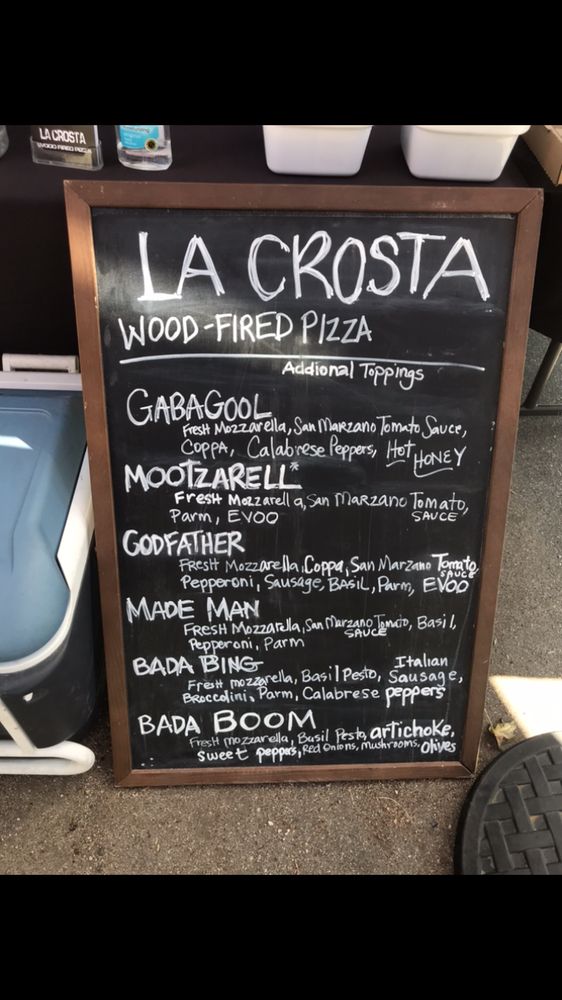 LA CROSTA
WOOD FIRED PIZZA
LA CROSTA
WOOD-FIRED PIZZA
Addional Toppings
GABAGOOL
Fresh Mozzarella, San Marzano Tomato Sauce,
Coppa, Calabrese Peppers, Hot Honey
MOOTZARELL*
Fresh Mozzarella, San Marzano Tomato,
Parm, EVOO SAUCE
GODFATHER
Fresh Mozzarella, Coppa, San Marzano Tomato
SAUCE
Pepperoni, Sausage, Basil, Parm, EVOO
MADE MAN
Fresh Mozzarella, San Marzano Tomato, Basil,
SAUCE
Pepperoni, Parm
BADA BING Italian
Fresh mozzarella, Basil Pesto, Sausage,
Broccolini, Parm, Calabrese peppers
BADA BOOM
Fresh mozzarella, Basil Pesto, artichoke,
sweet peppers, Red Onions, Mushrooms, olives